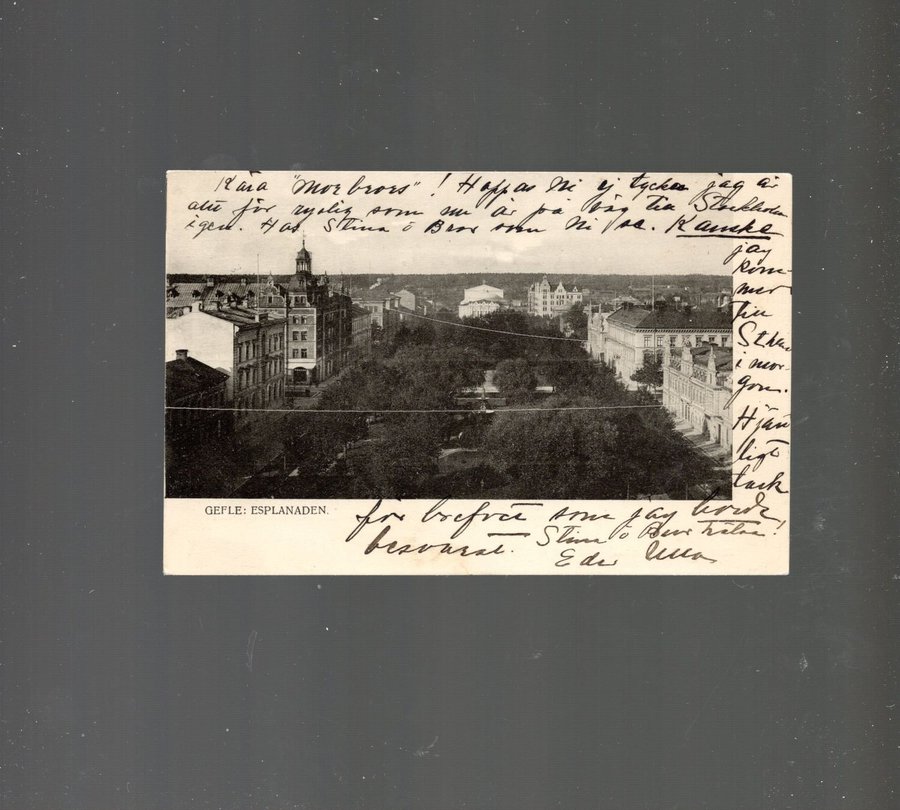 Kära "Morbrors"! Hoppas Ni ej tycker jag är
allt för ryslig som nu är på väg till Stockholm
igen. Har Stina o Bror som Ni se. Kanske
jag
kom-
mer
till
Sthm
i mor-
gon.
Hjärt
ligt
tack
GEFLE: ESPLANADEN.
för brefvet som jag borde
besvarat. Stina o Bror hälsa!
Eder Ulla